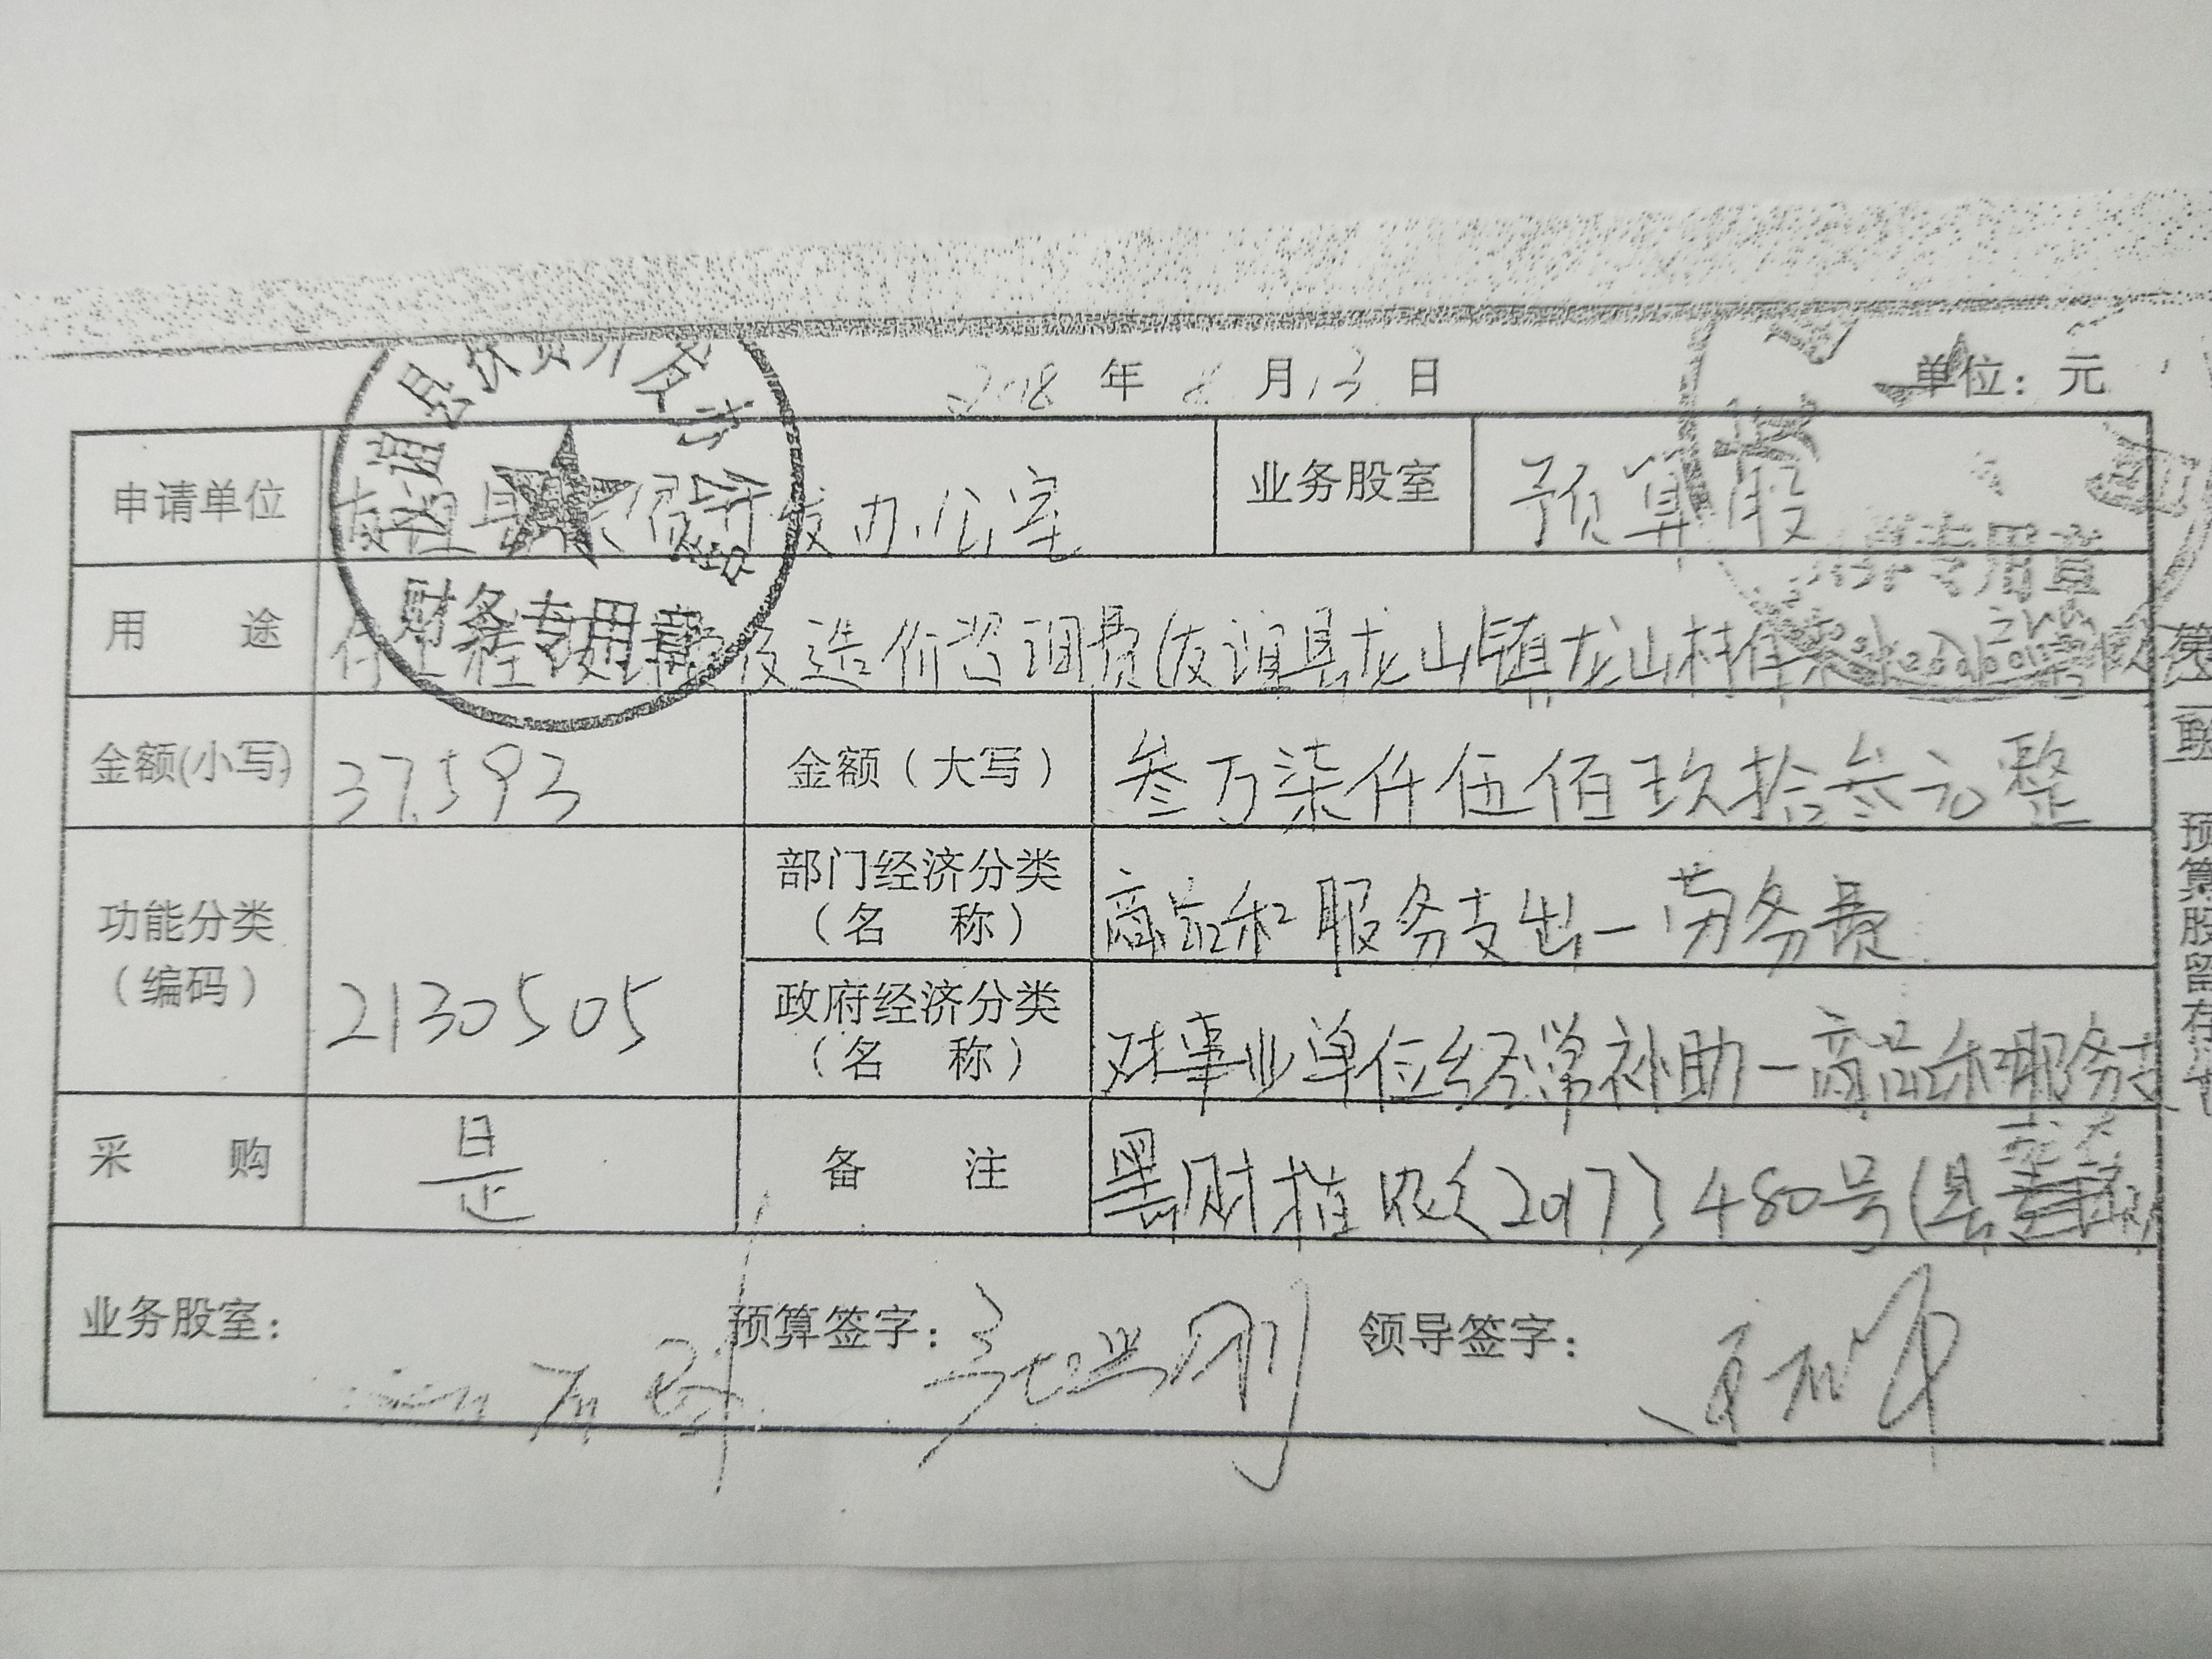 2018 年 8 月 13 日 单位：元
申请单位 友谊县扶贫开发办公室 业务股室 预算股
财务专用章
专用章
用 途 付工程 及造价咨询费(友谊县龙山镇龙山村
金额(小写) 37593 金额（大写） 叁万柒仟伍佰玖拾叁元整
功能分类（编码） 2130505 部门经济分类（名 称） 商品和服务支出－劳务费
政府经济分类（名 称） 对事业单位经常补助－商品和服务支
采 购 是 备 注 黑财指 〔2017〕480号(县
业务股室： 预算签字： 领导签字：
第一联 预算股留存